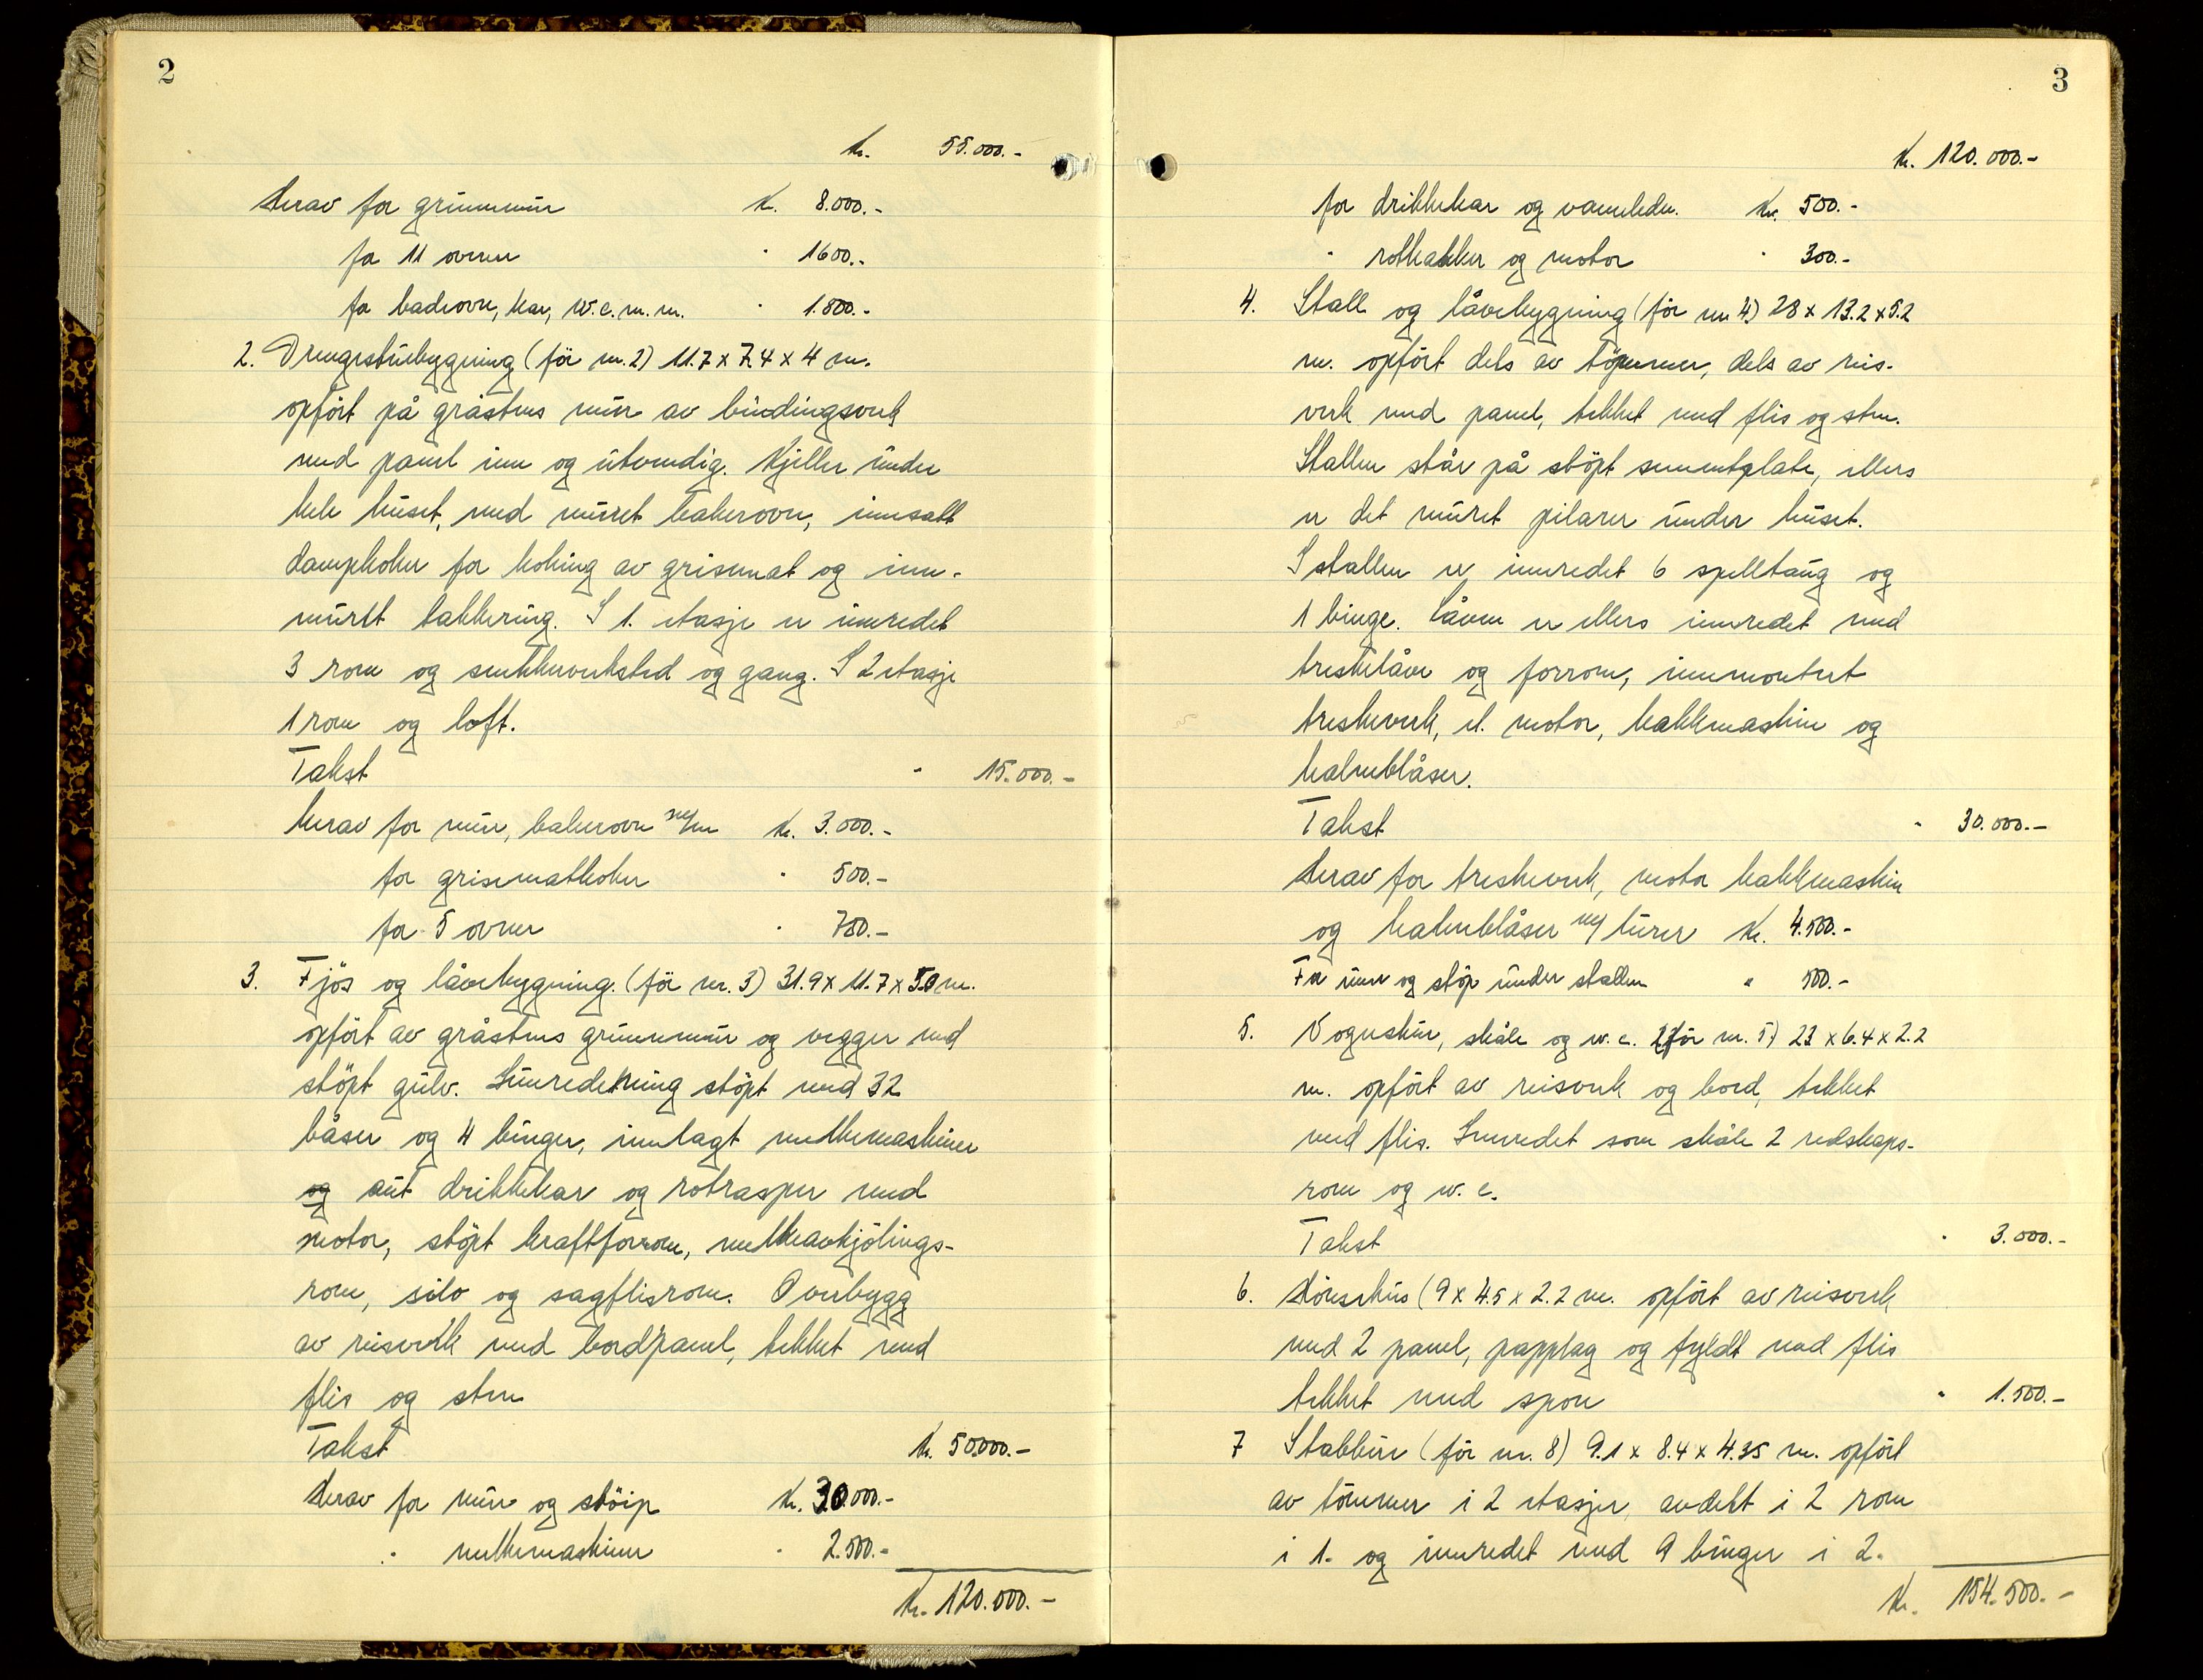 2
Kr. 55.000.-
Herav for grunnmur Kr. 8.000.-
for 11 ovner " 1600.-
for badeovn, kar, W.C. m.m. " 1.800.-
2. Drengestubygning (før nr. 2) 11.7 x 7.4 x 4 m.
opført på gråstens mur av bindingsverk
med panel inn og utvendig. Kjeller under
hele huset, med muret bakerovn, innsatt
dampkoker for koking av grisemat og inn-
muret takkering. I 1. etasje er innredet
3 rom og snekkerverksted og gang. I 2 etasje
1 rom og loft.
Takst " 15.000.-
herav for mur, bakerovn m/m Kr. 3.000.-
for grisematkoker " 500.-
for 5 ovner " 750.-
3. Fjøs og låvebygning. (før nr. 3) 31.9 x 11.7 x 5.0 m.
opført av gråstens grunnmur og vegger med
støpt gulv. Innredetning støpt med 32
båser og 4 binger, innlagt melkemaskiner
og aut drikkekar og rotrasper med
motor, støpt kraftforrom, melkeavkjølings-
rom, silo og sagflisrom. Overbygg
av reisverk med bordpanel, tekket med
flis og sten
Takst Kr. 50.000.-
Herav for mur og støip Kr. 30.000.-
" melkemaskiner " 2.500.-
Kr. 120.000.-
3
Kr. 120.000.-
for drikkekar og vannledn. Kr. 500.-
" rothakker og motor " 300.-
4. Stall og låvebygning (før nr. 4) 28 x 13.2 x 5.2
m. opført dels av tømmer, dels av reis-
verk med panel, tekket med flis og sten.
Stallen står på støpt sementplate, ellers
er det muret pilarer under huset.
I stallen er innredet 6 spelltaug og
1 binge. Låven er ellers innredet med
treskelåve og forrom, innmontert
treskeverk, el. motor, hakkmaskin og
halmblåser.
Takst " 30.000.-
Herav for treskeverk, motor hakkmaskin
og halmblåser m/ turer Kr. 4.500.-
For mur og støp under stallen " 500.-
5. Vognskur, skåle og w.c. (før nr. 5) 23 x 6.4 x 2.2
m. opført av reisverk og bord, tekket
med flis. Innredet som skåle 2 redskaps-
rom og w.c.
Takst " 3.000.-
6. Hønsehus (9 x 4.5 x 2.2 m. opført av reisverk
med 2 panel, papplag og fyldt med flis
tekket med spon " 1.500.-
7 Stabbur (før nr. 8) 9.1 x 8.4 x 4.35 m. opført
av tømmer i 2 etasjer, avdelt i 2 rom
i 1. og innredet med 9 binger i 2.
Kr. 154.500.-